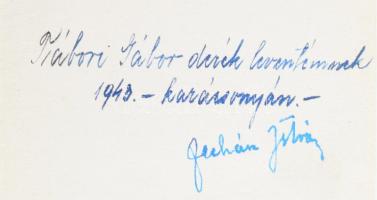 Tábori Gábor derék leventémnek
1943.- karácsonyán.-
István